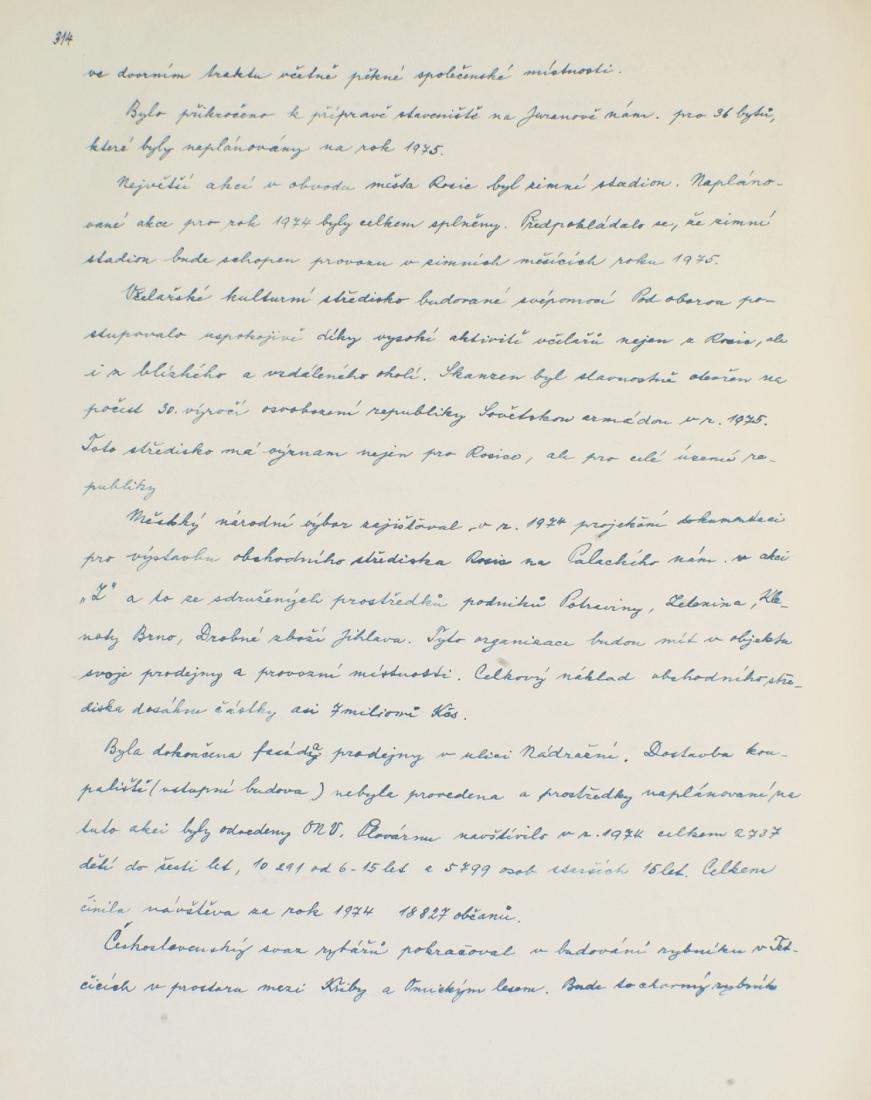 314
ve dvorním traktu včetně pěkné společenské místnosti.
Bylo přikročeno k přípravě staveniště na Juranově nám. pro 36 bytů,
které byly naplánovány na rok 1975.
Největší akcí v obvodu města Rosic byl zimní stadion. Napláno-
vané akce pro rok 1974 byly celkem splněny. Předpokládalo se, že zimní
stadion bude schopen provozu v zimních měsících roku 1975.
Včelařské kulturní středisko budované svépomocí Pod oborou po-
stupovalo uspokojivě díky vysoké aktivitě včelařů nejen z Rosic, ale
i z blízkého a vzdáleného okolí. Skanzen byl slavnostně otevřen na
počest 30. výročí osvobození republiky Sovětskou armádou v r. 1975.
Toto středisko má význam nejen pro Rosice, ale pro celé území re-
publiky
Městský národní výbor zajišťoval v r. 1974 projekční dokumentaci
pro výstavbu obchodního střediska Rosic na Palackého nám. v akci
„Z" a to ze sdružených prostředků podniků Potraviny, Zelenina, Kle-
noty Brno, Drobné zboží Jihlava. Tyto organizace budou mít v objektu
svoje prodejny a provozní místnosti. Celkový náklad obchodního stře-
diska dosáhne částky asi 7 milionů Kčs.
Byla dokončena fasáda prodejny v ulici Nádražní. Dostavba kou-
paliště (vstupní budova) nebyla provedena a prostředky naplánované na
tuto akci byly odvedeny ONV. Plovárnu navštívilo v r. 1974 celkem 2737
dětí do šesti let, 10 291 od 6-15 let a 5799 osob starších 15 let. Celkem
činila návštěva za rok 1974 18827 občanů.
Československý svaz rybářů pokračoval v budování rybníku v Tet-
čicích v prostoru mezi Křiby a Omickým lesem. Bude to chovný rybník